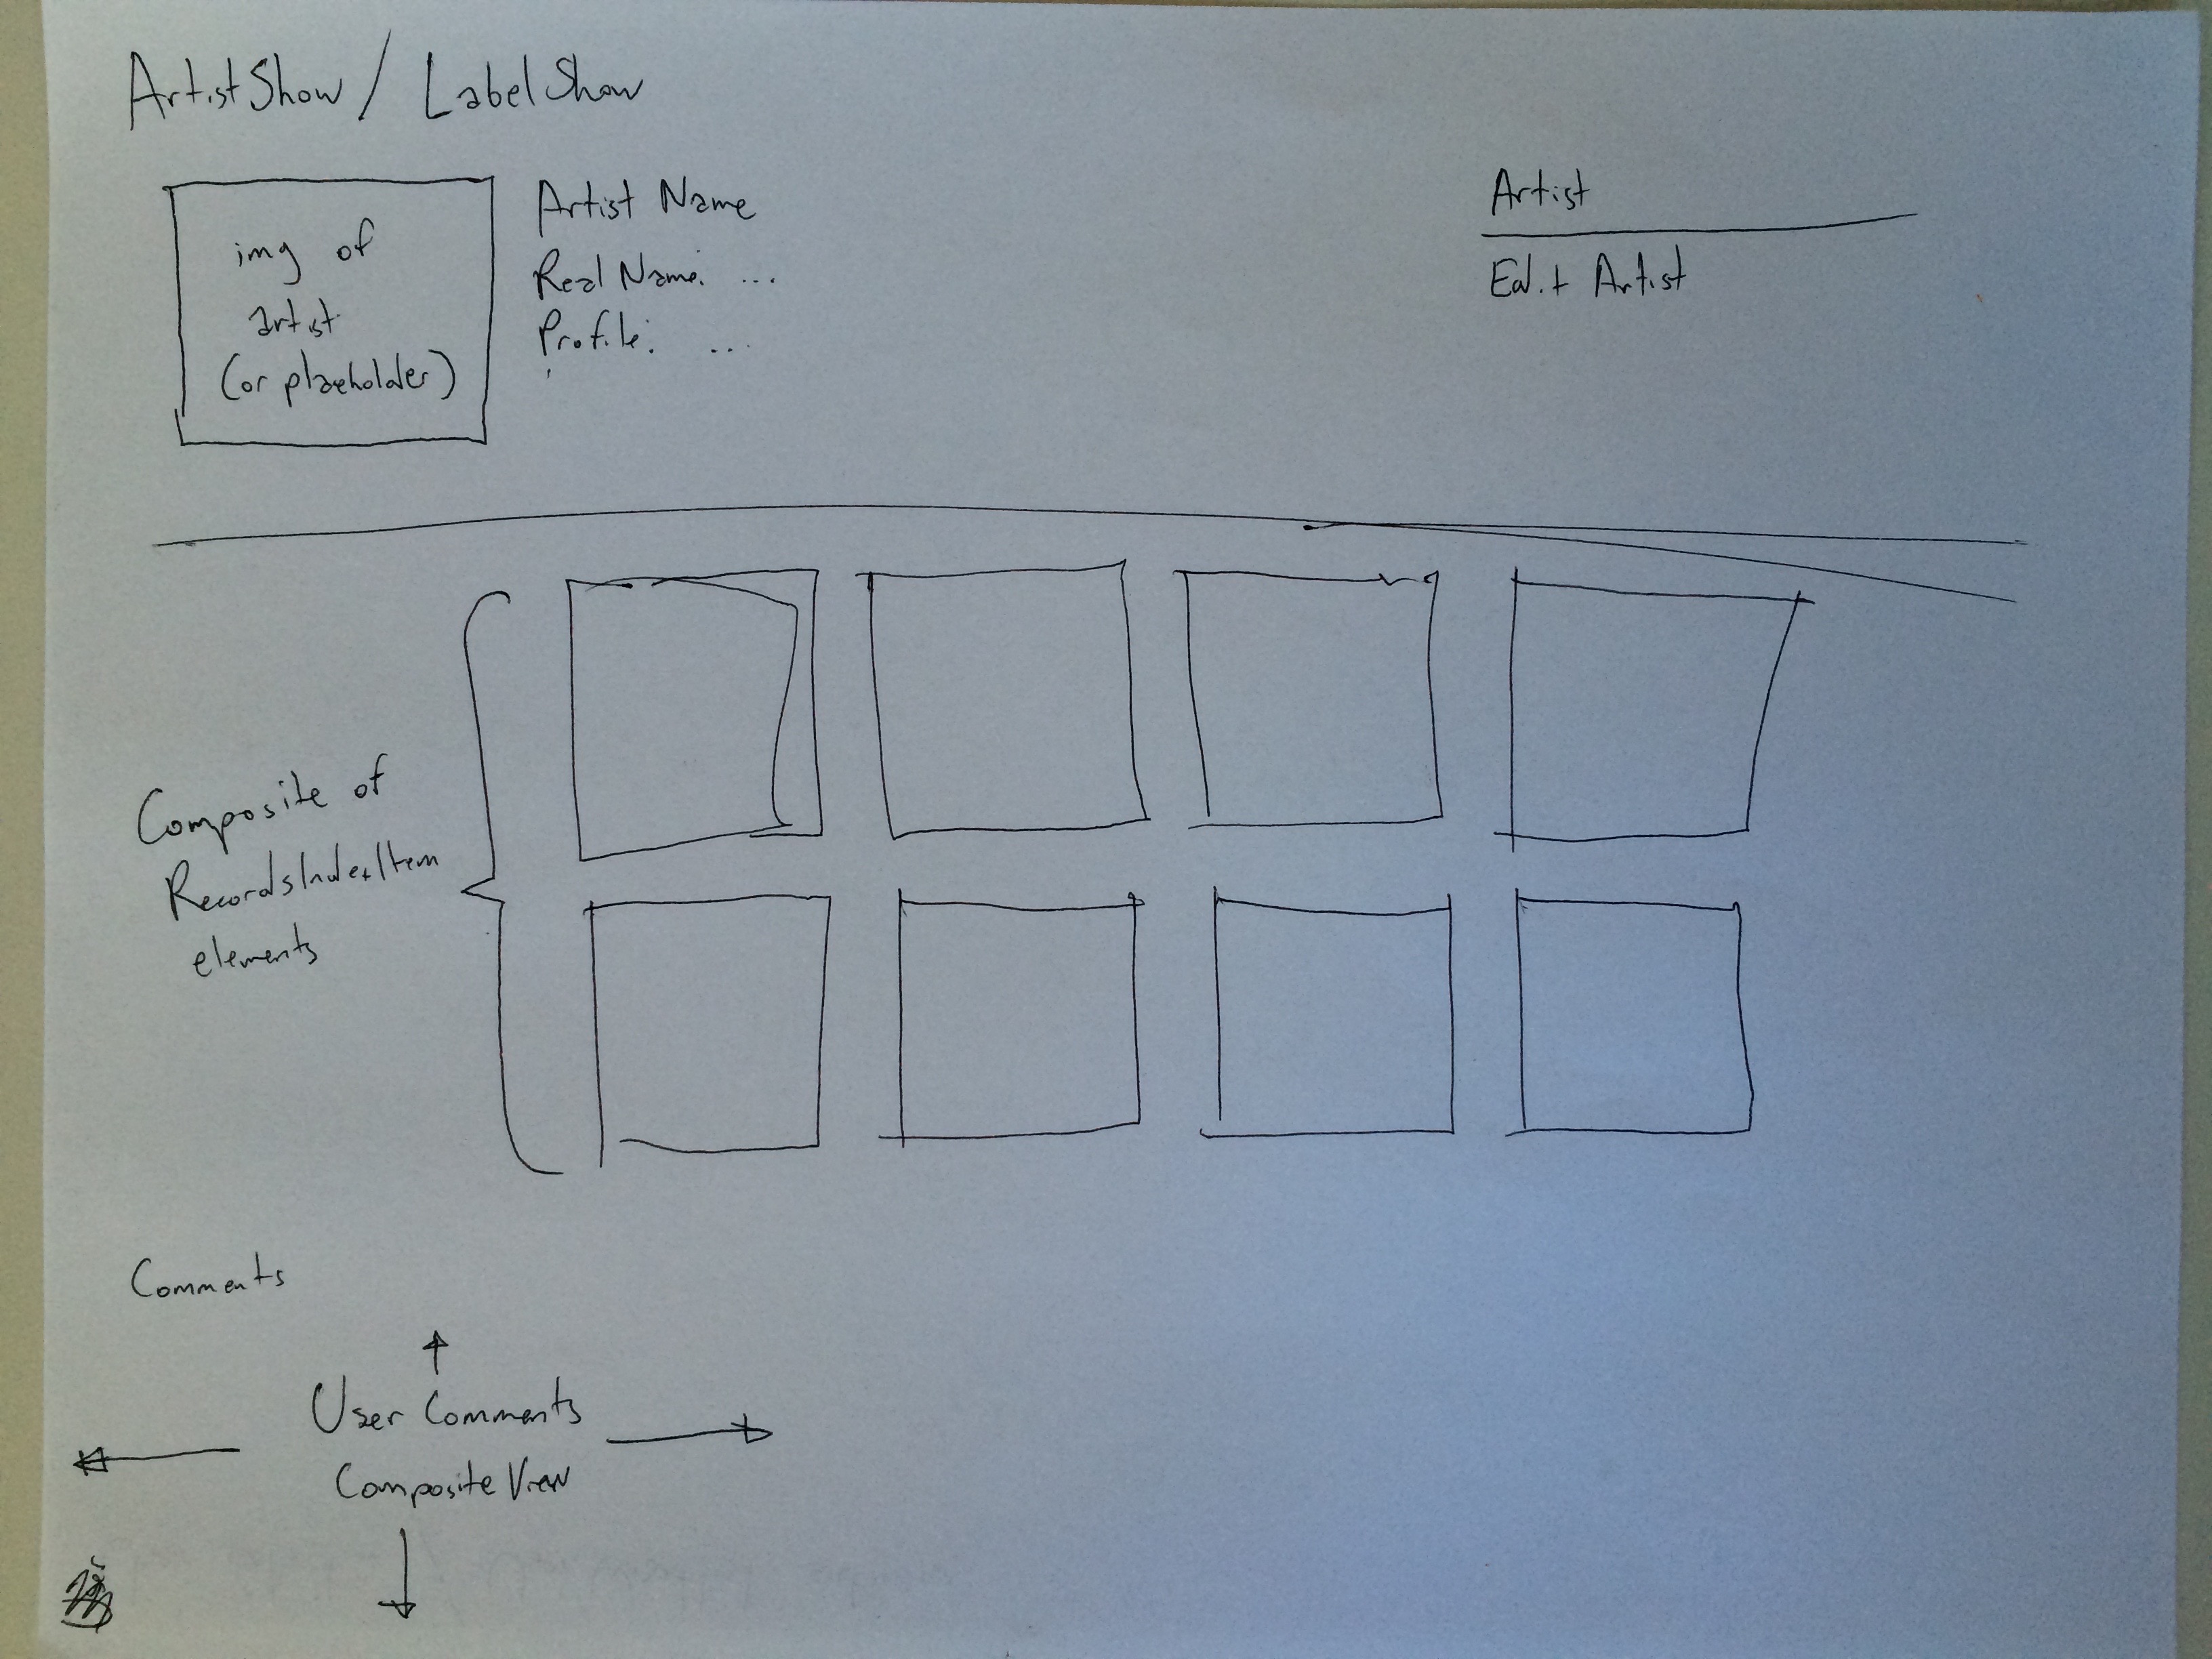 ArtistShow / LabelShow
img of
artist
(or placeholder)
Artist Name
Real Name: ...
Profile: ...
Artist
Edit Artist
Composite of
RecordsIndexItem
elements
Comments
User Comments
Composite View